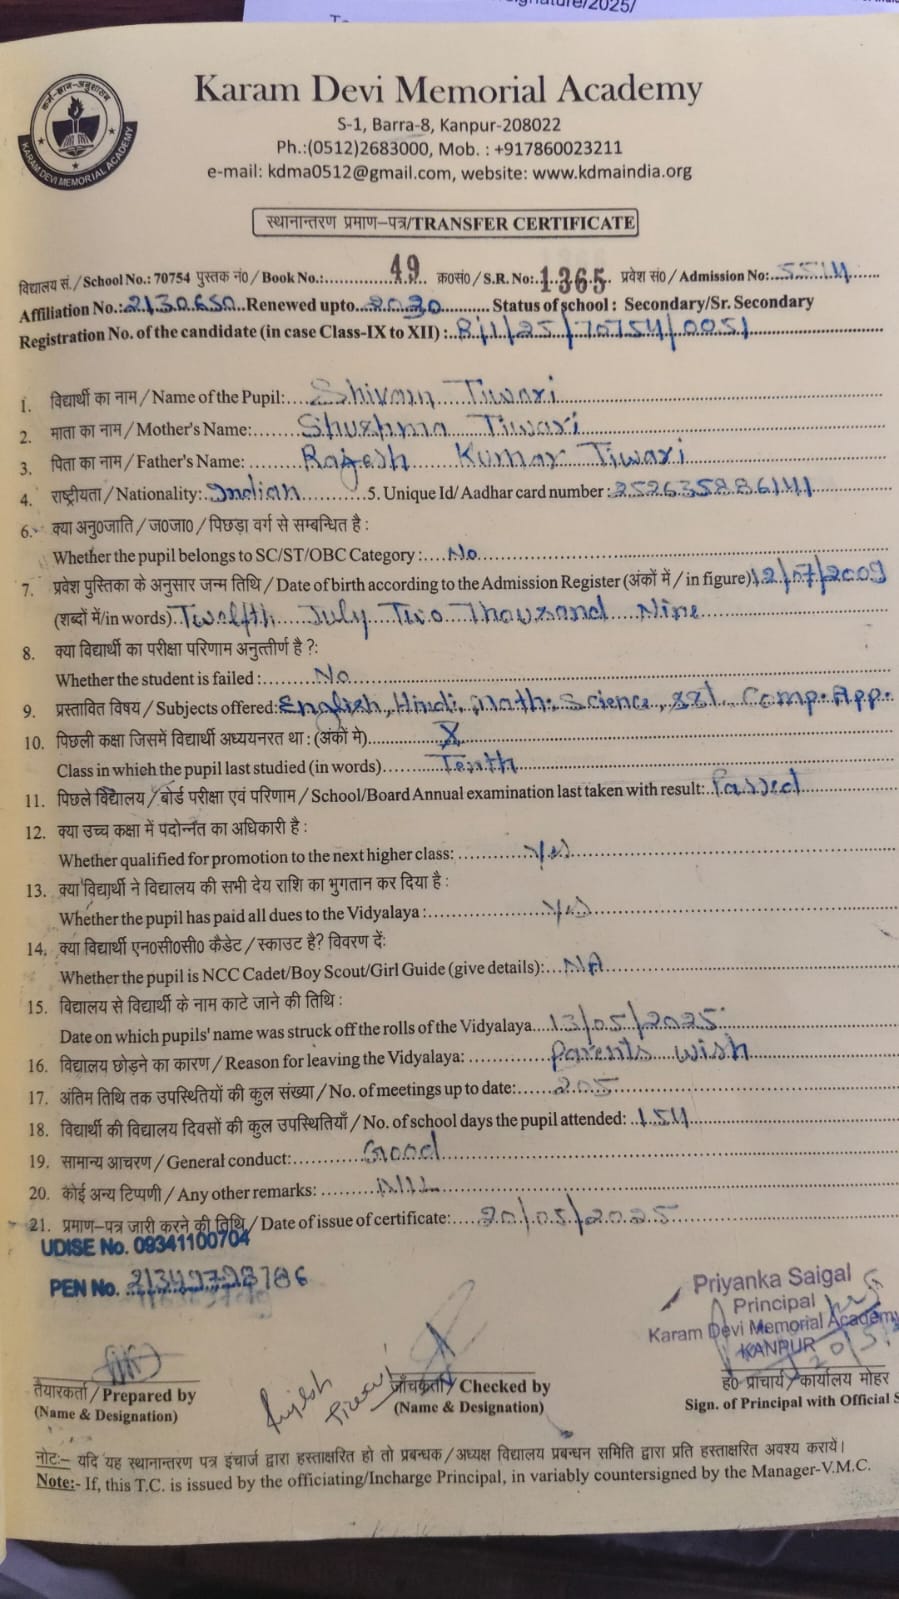 कर्म-ज्ञान-अनुशासन
KARAM DEVI MEMORIAL ACADEMY
Karam Devi Memorial Academy
S-1, Barra-8, Kanpur-208022
Ph.:(0512)2683000, Mob. : +917860023211
e-mail: kdma0512@gmail.com, website: www.kdmaindia.org
स्थानान्तरण प्रमाण-पत्र/TRANSFER CERTIFICATE
विद्यालय सं./School No.: 70754 पुस्तक नं0/Book No.: 49 क्र०सं०/S.R. No: 1365 प्रवेश सं0/Admission No: 5514
Affiliation No.: 2130650 Renewed upto 2030 Status of school : Secondary/Sr. Secondary
Registration No. of the candidate (in case Class-IX to XII) : B/1/25/70754/0051
1. विद्यार्थी का नाम/Name of the Pupil: Shivam Tiwari
2. माता का नाम/Mother's Name: Shushma Tiwari
3. पिता का नाम/Father's Name: Rajesh Kumar Tiwari
4. राष्ट्रीयता/Nationality: Indian 5. Unique Id/Aadhar card number : 252635886141
6. क्या अनु0जाति/ज0जा0/पिछड़ा वर्ग से सम्बन्धित है :
Whether the pupil belongs to SC/ST/OBC Category : No
7. प्रवेश पुस्तिका के अनुसार जन्म तिथि/Date of birth according to the Admission Register (अंकों में/in figure) 12/07/2009
(शब्दों में/in words) Twelfth July Two Thousand Nine
8. क्या विद्यार्थी का परीक्षा परिणाम अनुत्तीर्ण है ?:
Whether the student is failed : No
9. प्रस्तावित विषय/Subjects offered: English, Hindi, Math, Science, SSt, Comp. App.
10. पिछली कक्षा जिसमें विद्यार्थी अध्ययनरत था : (अंकों मे) X
Class in which the pupil last studied (in words) Tenth
11. पिछले विद्यालय/बोर्ड परीक्षा एवं परिणाम/School/Board Annual examination last taken with result: Passed
12. क्या उच्च कक्षा में पदोन्नत का अधिकारी है :
Whether qualified for promotion to the next higher class: Yes
13. क्या विद्यार्थी ने विद्यालय की सभी देय राशि का भुगतान कर दिया है :
Whether the pupil has paid all dues to the Vidyalaya : Yes
14. क्या विद्यार्थी एन0सी0सी0 कैडेट/स्काउट है? विवरण दें:
Whether the pupil is NCC Cadet/Boy Scout/Girl Guide (give details): NA
15. विद्यालय से विद्यार्थी के नाम काटे जाने की तिथि :
Date on which pupils' name was struck off the rolls of the Vidyalaya 13/05/2025
16. विद्यालय छोड़ने का कारण/Reason for leaving the Vidyalaya: Parents wish
17. अंतिम तिथि तक उपस्थितियों की कुल संख्या/No. of meetings up to date: 205
18. विद्यार्थी की विद्यालय दिवसों की कुल उपस्थितियाँ/No. of school days the pupil attended: 154
19. सामान्य आचरण/General conduct: Good
20. कोई अन्य टिप्पणी/Any other remarks: NIL
21. प्रमाण-पत्र जारी करने की तिथि/Date of issue of certificate: 20/05/2025
UDISE No. 09341100704
PEN No.
Priyanka Saigal
Principal
Karam Devi Memorial Academy
KANPUR
Rajesh Tiwari
तैयारकर्ता/Prepared by
(Name & Designation)
जाँचकर्ता/Checked by
(Name & Designation)
ह0 प्राचार्य/कार्यालय मोहर
Sign. of Principal with Official S
नोट:- यदि यह स्थानान्तरण पत्र इंचार्ज द्वारा हस्ताक्षरित हो तो प्रबन्धक/अध्यक्ष विद्यालय प्रबन्धन समिति द्वारा प्रति हस्ताक्षरित अवश्य करायें।
Note:- If, this T.C. is issued by the officiating/Incharge Principal, in variably countersigned by the Manager-V.M.C.